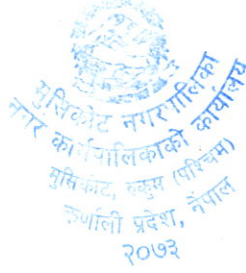 मुसिकोट नगरपालिका
नगर कार्यपालिकाको कार्यालय
मुसिकोट, रुकुम (पश्चिम)
कर्णाली प्रदेश, नेपाल
२०७३